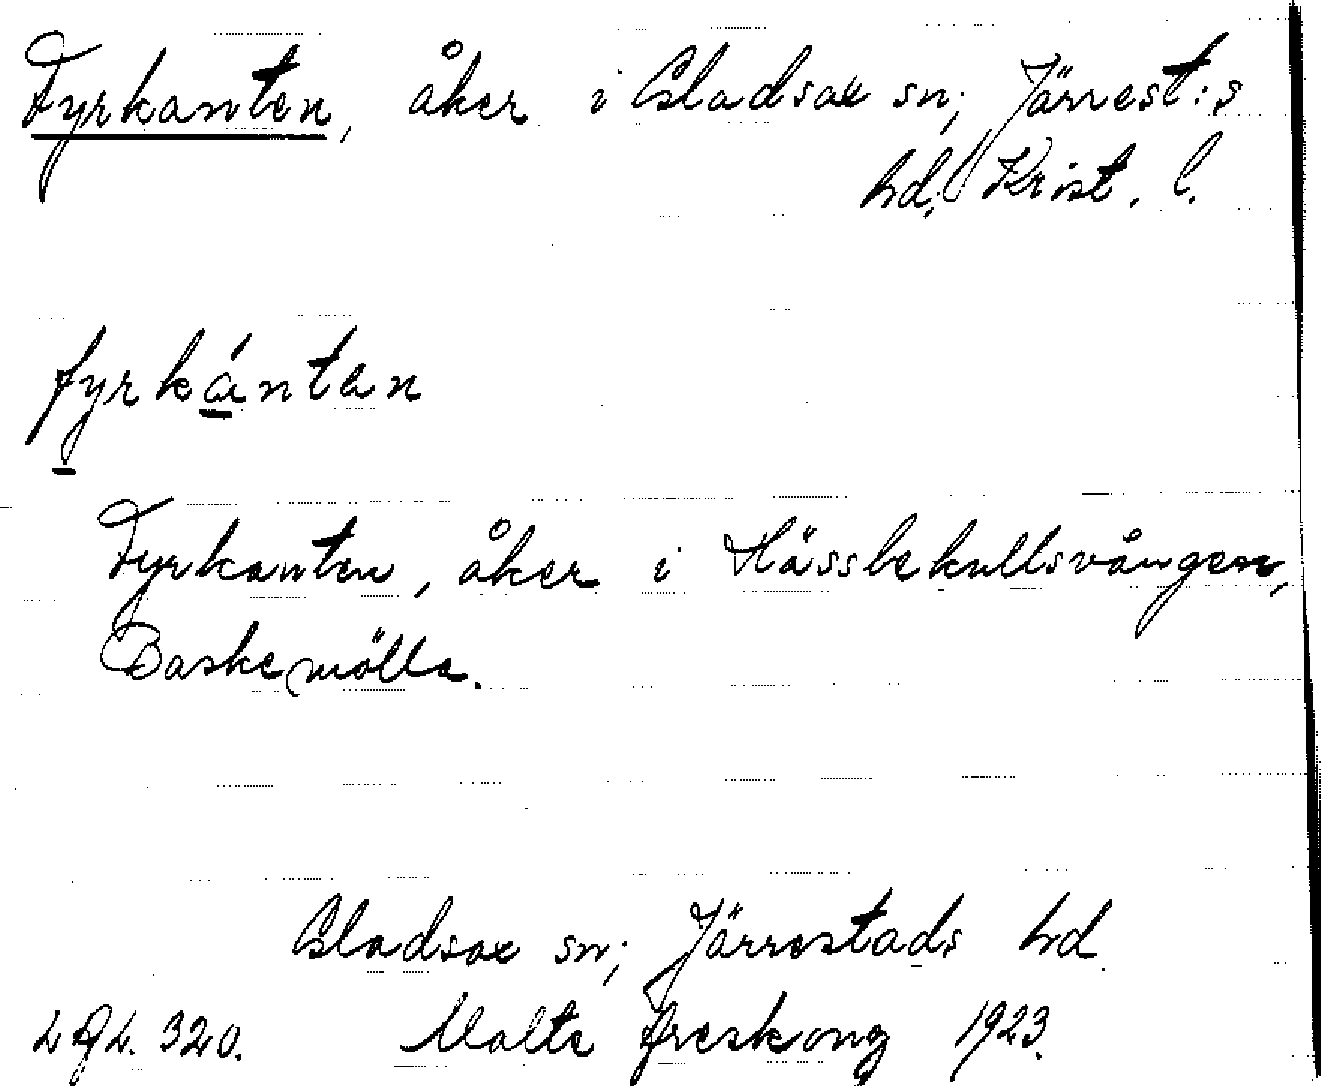 Fyrkanten, åker i Gladsax sn; Järrest:s
hd, Krist. l.
fyrkánten
Fyrkanten, åker i Hässlekullsvången,
Baskemölla.
Gladsax sn; Järrestads hd.
320. Malte 1923.